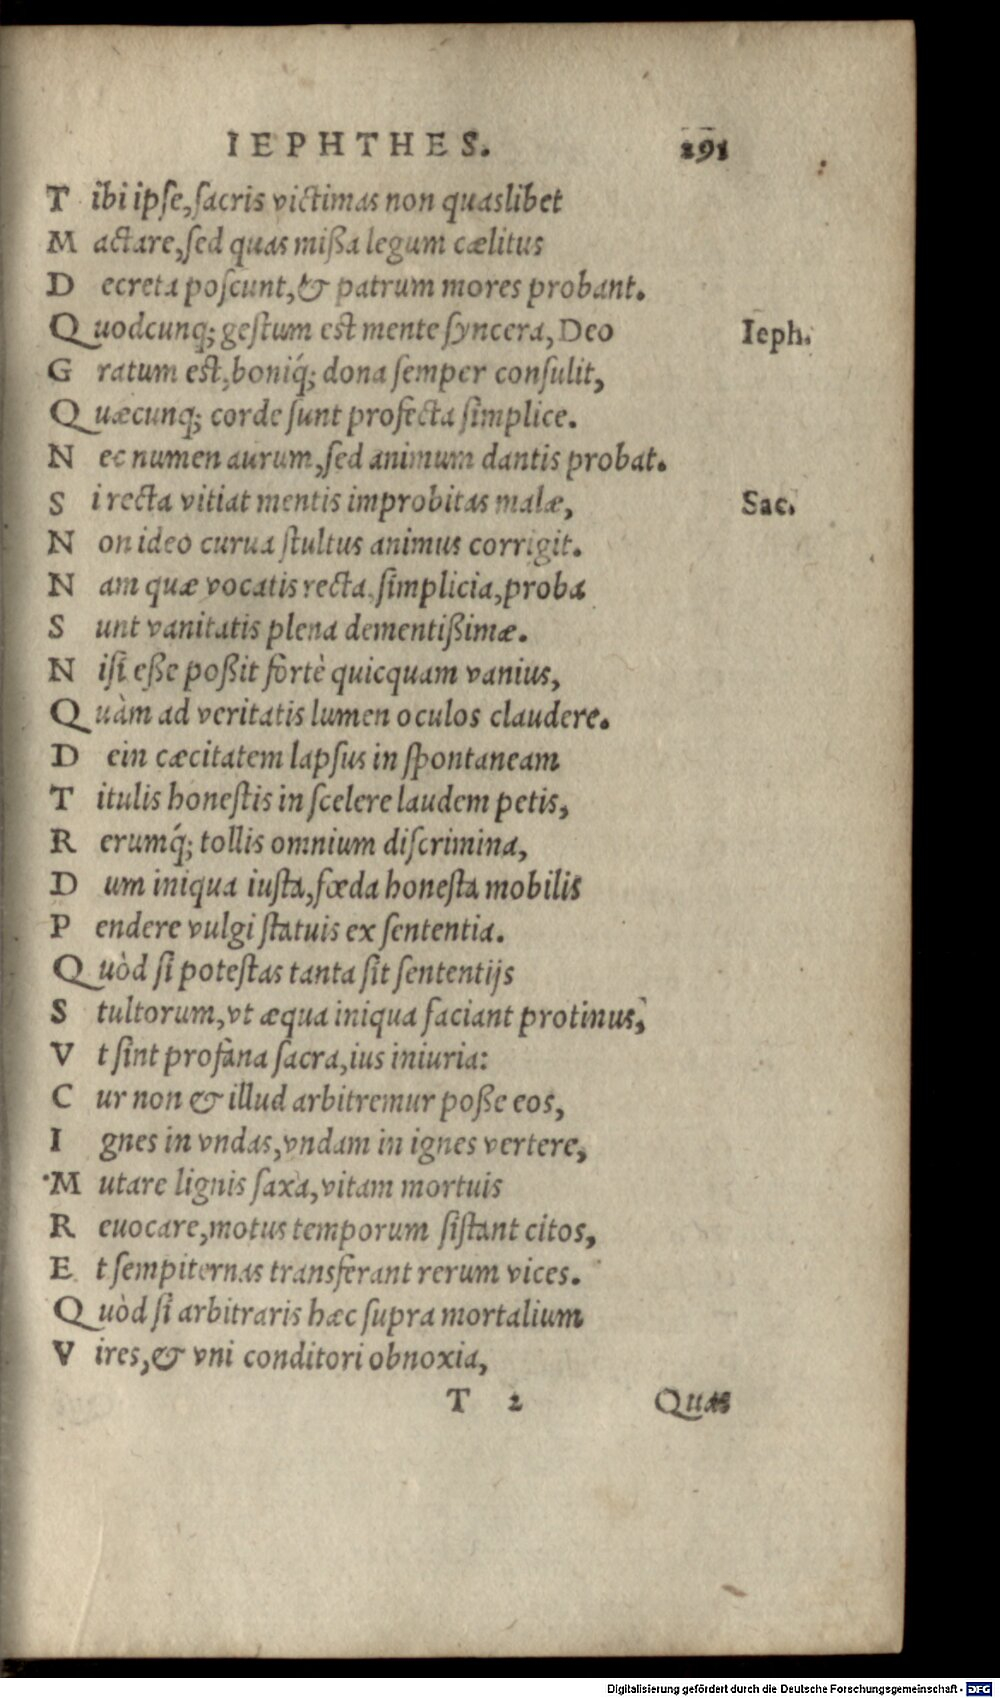 IEPHTHES. 291
Tibi ipse, sacris victimas non quaslibet
Mactare, sed quas mißa legum cælitus
Decreta poscunt, & patrum mores probant.
Quodcunq; gestum est mente syncera, Deo Ieph.
Gratum est, boniq́; dona semper consulit,
Quæcunq; corde sunt profecta simplice.
Nec numen aurum, sed animum dantis probat.
Si recta vitiat mentis improbitas malæ, Sac.
Non ideo curua stultus animus corrigit.
Nam quæ vocatis recta, simplicia, proba
Sunt vanitatis plena dementißimæ.
Nisi eße poßit fortè quicquam vanius,
Quàm ad veritatis lumen oculos claudere.
Dein cæcitatem lapsus in spontaneam
Titulis honestis in scelere laudem petis,
Rerumq́; tollis omnium discrimina,
Dum iniqua iusta, fœda honesta mobilis
Pendere vulgi statuis ex sententia.
Quòd si potestas tanta sit sententijs
Stultorum, vt æqua iniqua faciant protinus,
Vt sint profana sacra, ius iniuria:
Cur non & illud arbitremur poße eos,
Ignes in vndas, vndam in ignes vertere,
Mutare lignis saxa, vitam mortuis
Reuocare, motus temporum sistant citos,
Et sempiternas transferant rerum vices.
Quòd si arbitraris hæc supra mortalium
Vires, & vni conditori obnoxia,
T 2 Quas
Digitalisierung gefördert durch die Deutsche Forschungsgemeinschaft - DFG